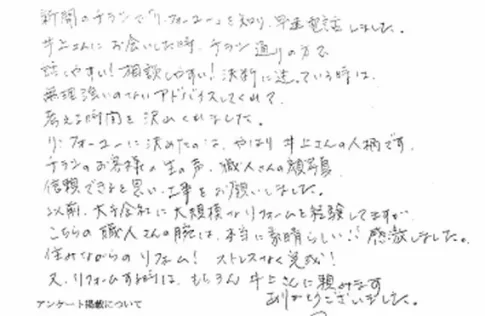 新聞のチラシで「リ・フォーユー」を知り、早速電話しました。
井上さんにお会いした時、チラシ通りの方で
話しやすい!相談しやすい!決断に迷っている時は、
無理強いのないアドバイスしてくれて、
考える時間を沢山くれました。
リ・フォーユーに決めたのは、やはり井上さんの人柄です。
チラシのお客様の生の声、職人さんの顔写真、
信頼できると思い、工事をお願いしました。
以前、大手会社に大規模なリフォームを経験してますが、
こちらの職人さんの腕は、本当に素晴らしい!!感激しました。
住みながらのリフォーム!ストレスなく完成!
又、リフォームする時は、もちろん井上さんに頼みます
ありがとうございました。
アンケート掲載について